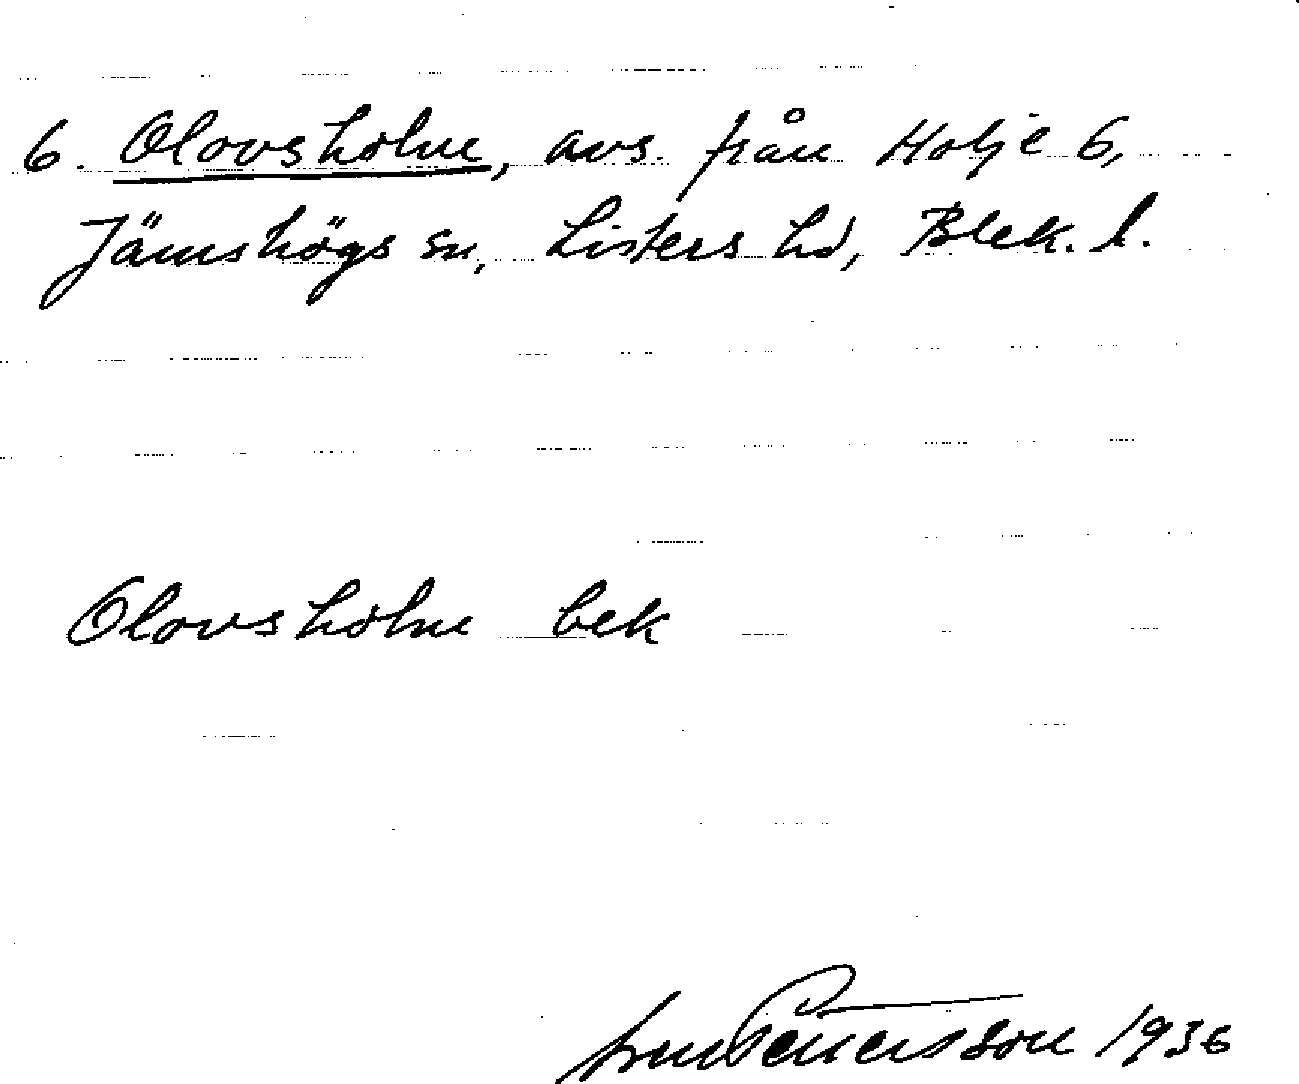 6. Olovsholm, avs. från Holje 6,
Jämshögs sn, Listers hd, Blek. l.
Olovsholm bek
Pettersson 1936